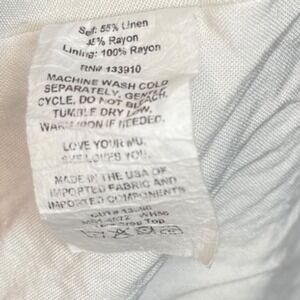 Self: 55% Linen
45% Rayon
Lining: 100% Rayon
RN# 133910
MACHINE WASH COLD
SEPARATELY, GENTLE
CYCLE, DO NOT BLEACH,
TUMBLE DRY LOW,
WARM IRON IF NEEDED.
LOVE YOUR MU.
SHE LOVES YOU.
MADE IN THE USA OF
IMPORTED FABRIC AND
IMPORTED COMPONENTS
Top